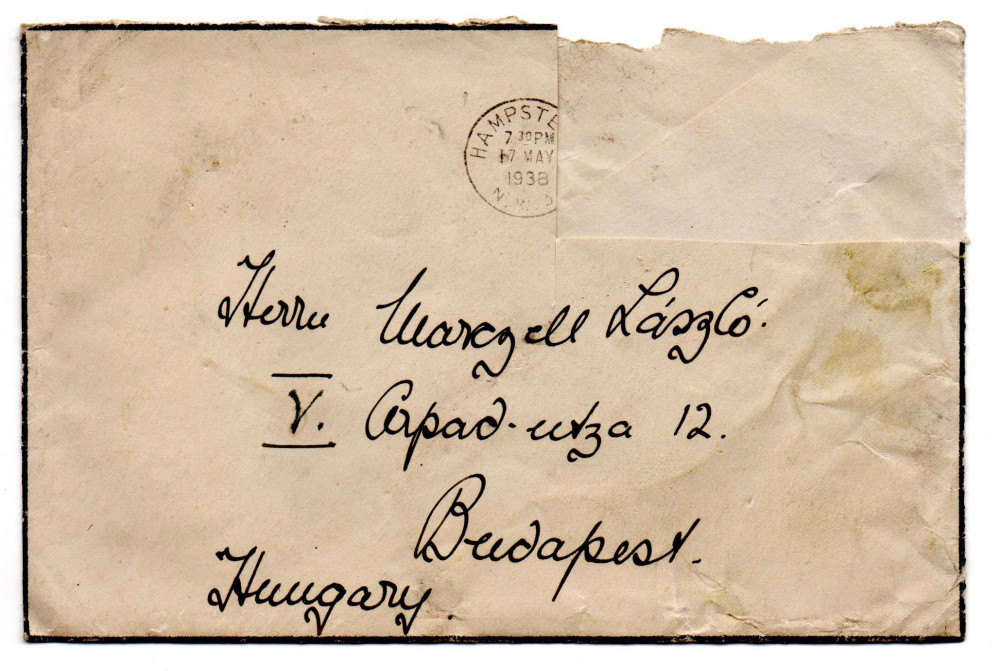 HAMPSTE
7 30 PM
17 MAY
1938
N.W.
Herrn Marczell László.
V. Arpad-utza 12.
Budapest.
Hungary.